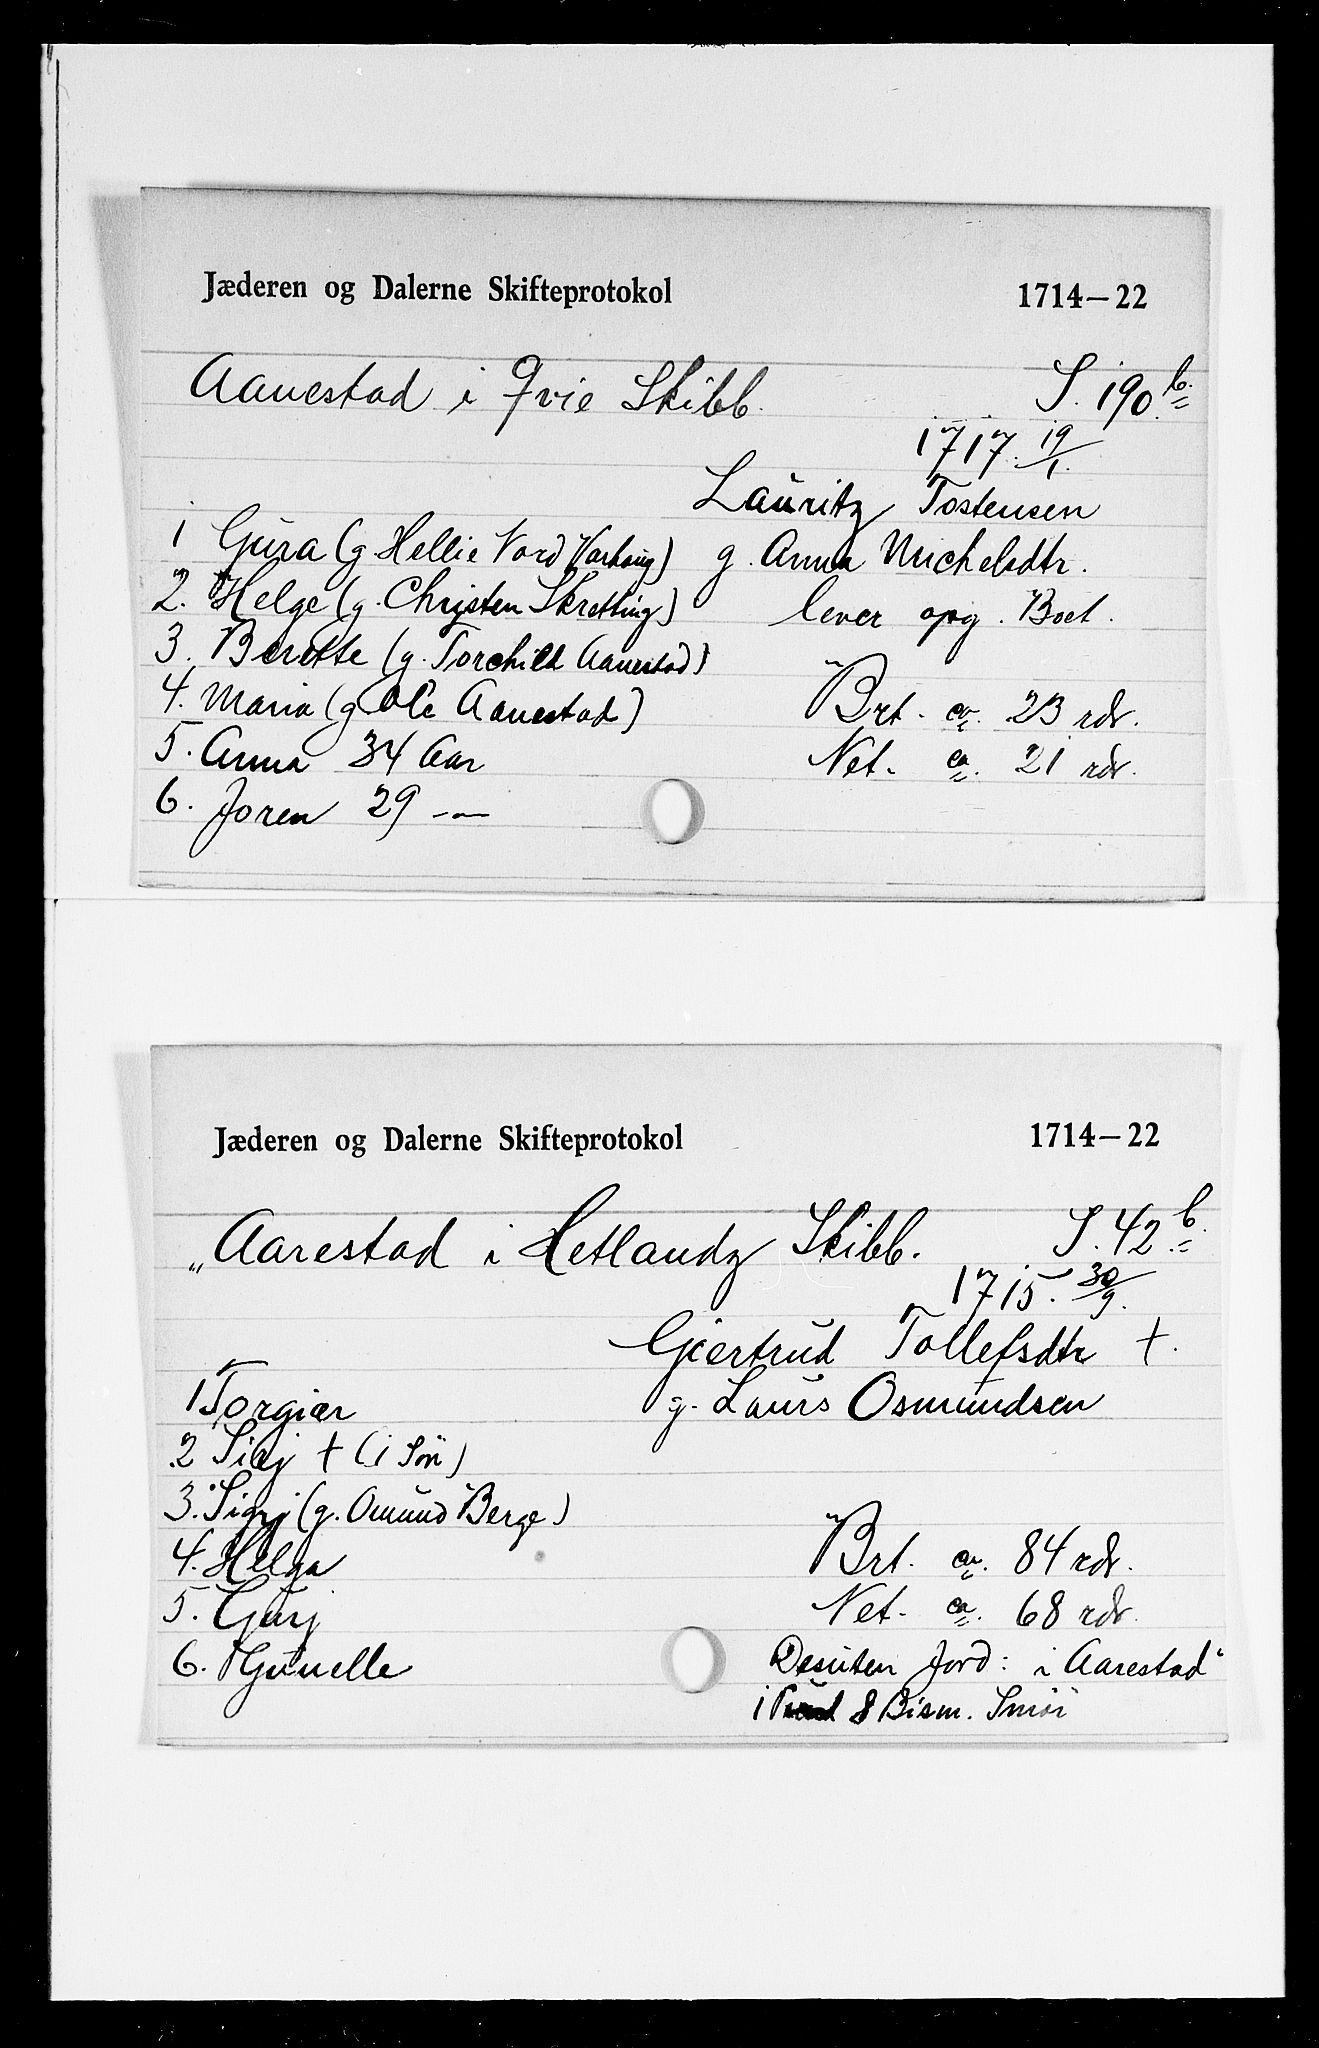 Jæderen og Dalerne Skifteprotokol 1714—22
Aanestad i Qvie Skibb. S. 190 b.
1717 19/1.
Lauritz Tostensen
1 Gura (g. Hellie Nord Varhoug) g. Anna Michelsdtr.
2. Helge (g. Christen Skretting) lever opg. Boet.
3. Beritte (g. Torchild Aanestad)
4. Maria (g. Ole Aanestad) Brt. ca. 23 rdr.
5. Anna 34 Aar Net. ca. 21 rdr.
6. Joren 29 —
Jæderen og Dalerne Skifteprotokol 1714—22
„Aarestad i Hetlandz Skibb. S. 42 b.
1715. 30/9.
Giertrud Tollefsdtr †.
1 Torgier g. Laurs Osmundsen
2 Sirj † (1 Sön)
3. Sigrj (g. Omund Berge)
4. Helga Brt. ca. 84 rdr.
5. Gurj Net. ca. 68 rdr.
6. Gunelle Desuten Jord: i Aarestad"
1 8 Bism. Smör